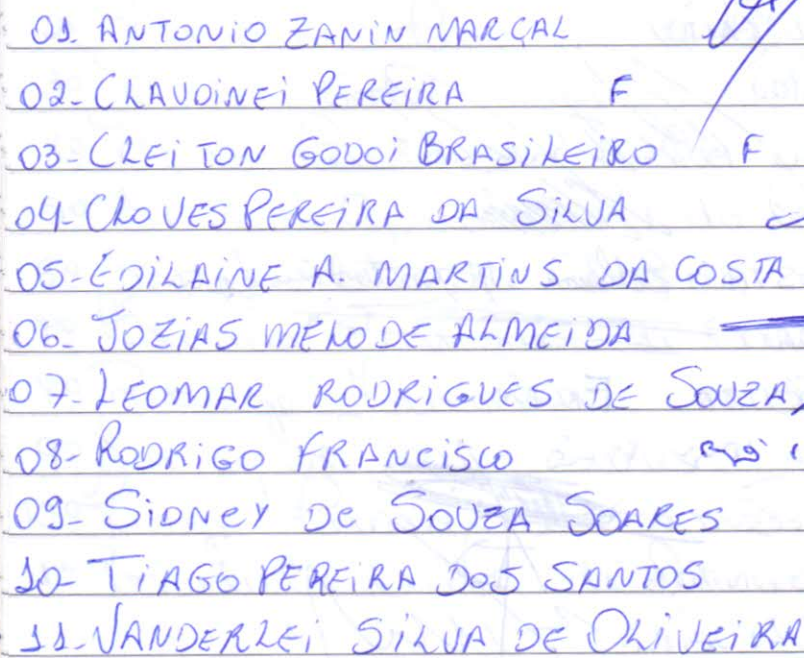 01. ANTONIO ZANIN MARÇAL
02- CLAUDINEI PEREIRA F
03- CLEITON GODOI BRASILEIRO F
04- CLOVES PEREIRA DA SILVA
05- EDILAINE A. MARTINS DA COSTA
06- JOZIAS MELO DE ALMEIDA
07- LEOMAR RODRIGUES DE SOUZA
08- RODRIGO FRANCISCO
09- SIDNEY DE SOUZA SOARES
10- TIAGO PEREIRA DOS SANTOS
11- VANDERLEI SILVA DE OLIVEIRA